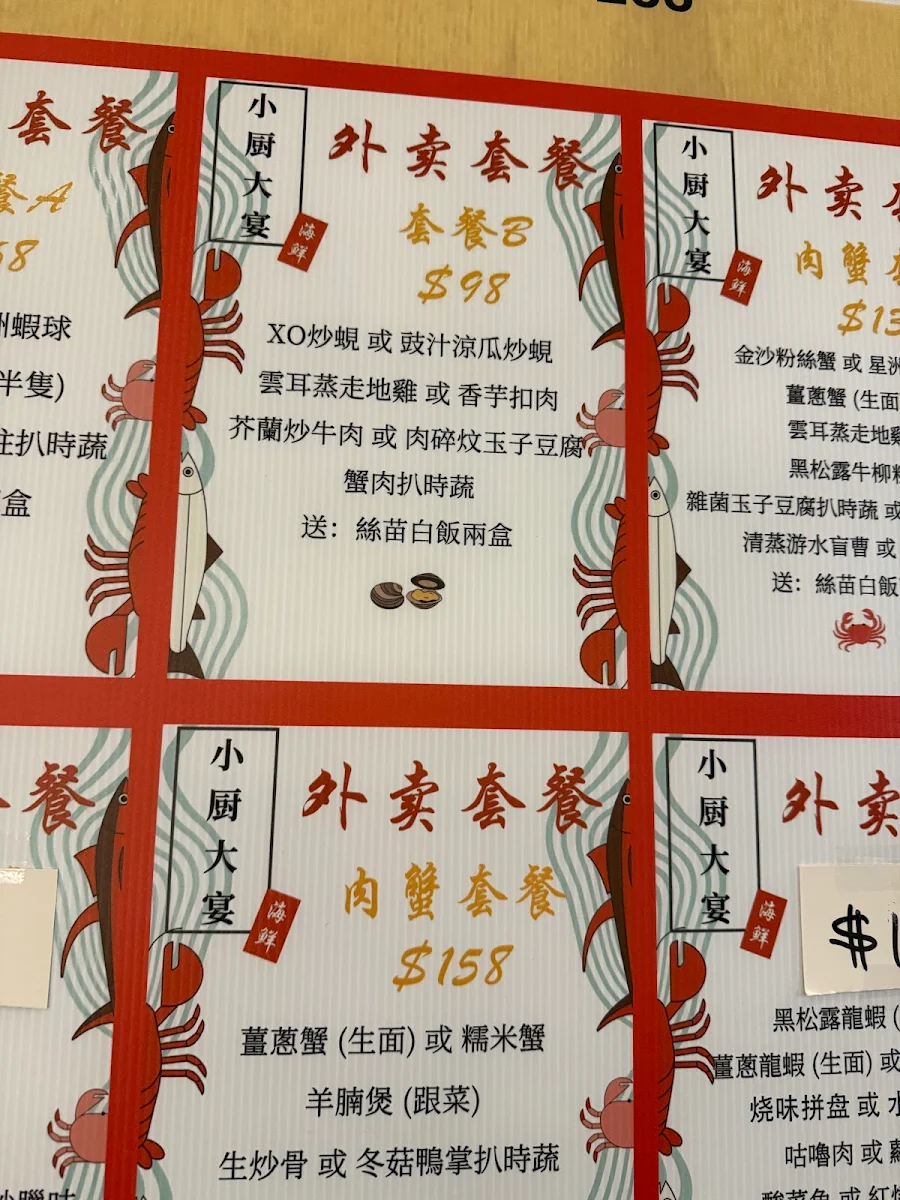 套餐
餐A
洲蝦球
半隻)
扒時蔬
盒
小厨大宴
海鮮
外卖套餐
套餐B
$98
XO炒蜆 或 豉汁涼瓜炒蜆
雲耳蒸走地雞 或 香芋扣肉
芥蘭炒牛肉 或 肉碎炆玉子豆腐
蟹肉扒時蔬
送：絲苗白飯兩盒
小厨大宴
海鮮
外卖
肉蟹
$13
金沙粉絲蟹 或 星洲
薑蔥蟹 (生面
雲耳蒸走地雞
黑松露牛柳粒
雜菌玉子豆腐扒時蔬 或
清蒸游水盲曹 或
送：絲苗白飯
餐
小厨大宴
海鮮
外卖套餐
肉蟹套餐
$158
薑蔥蟹 (生面) 或 糯米蟹
羊腩煲 (跟菜)
生炒骨 或 冬菇鴨掌扒時蔬
小厨大宴
海鮮
外卖
$1
黑松露龍蝦 (
薑蔥龍蝦 (生面) 或
烧味拼盘 或 水
咕嚕肉 或